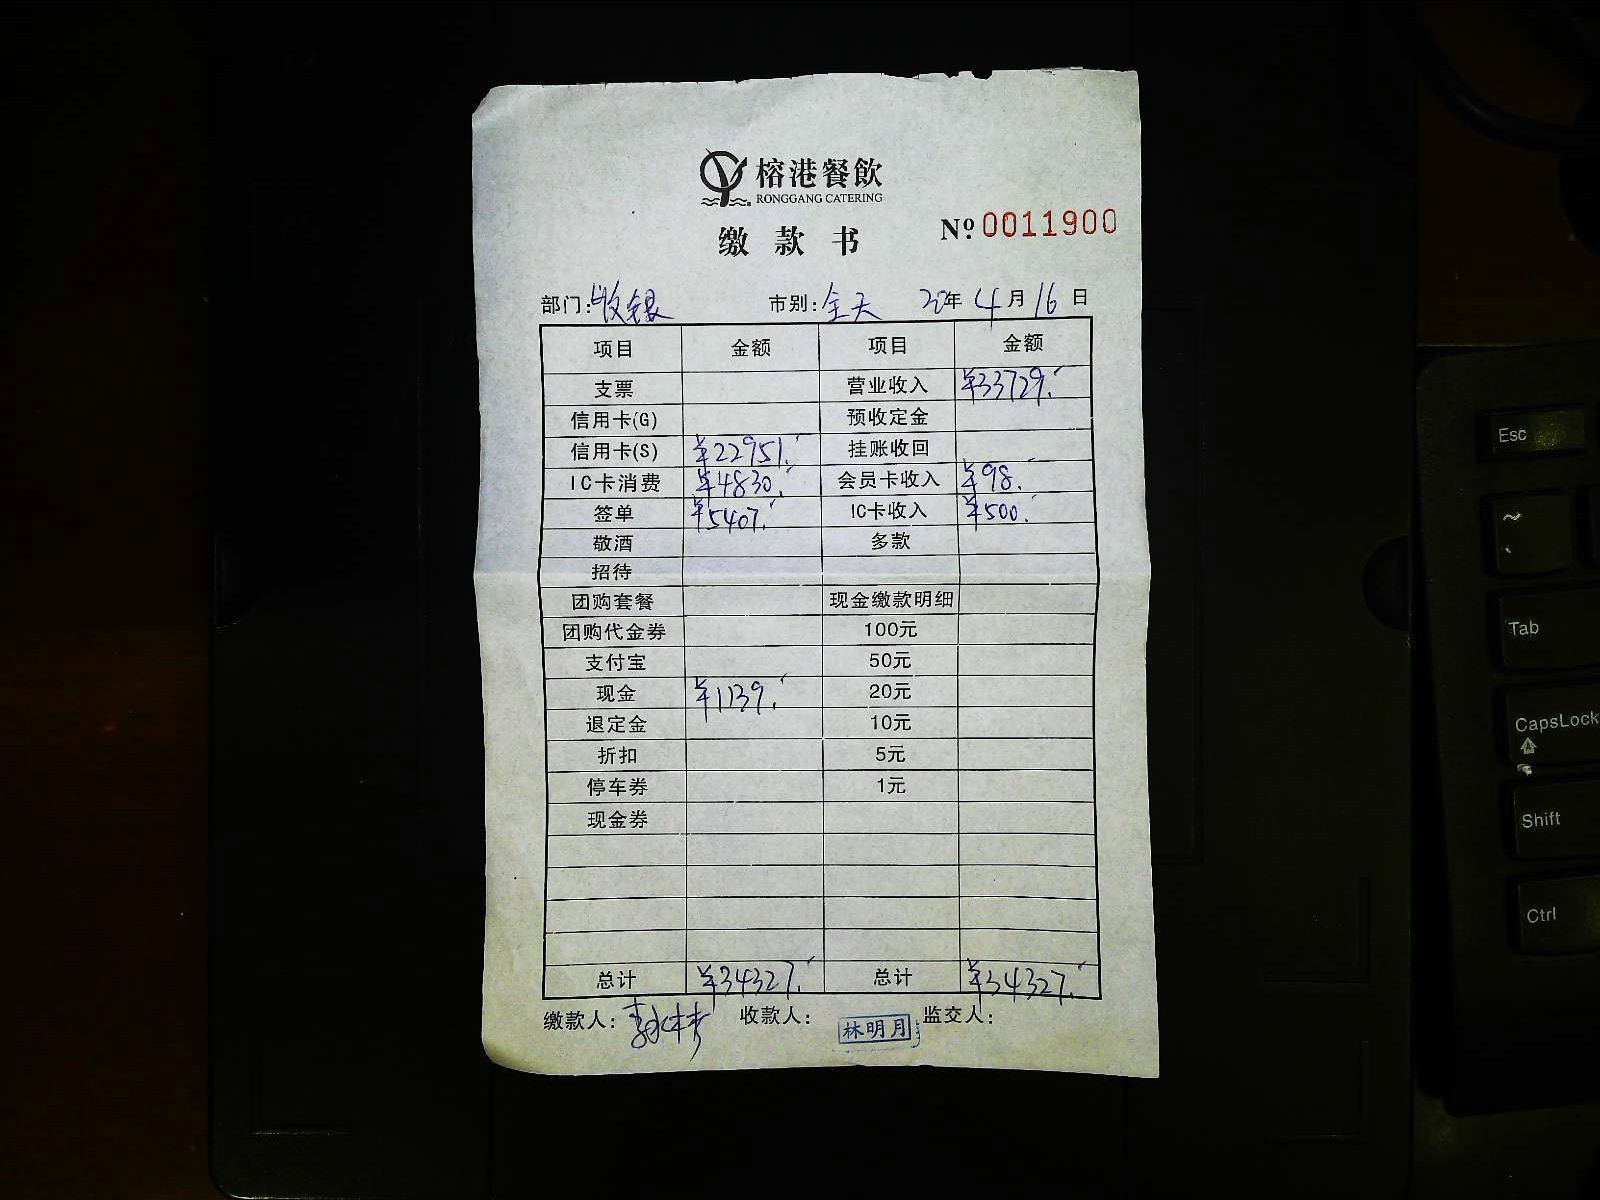 榕港餐飲
RONGGANG CATERING
缴款书
Nº 0011900
部门:收银 市别:全天 20年4月16日
项目 金额 项目 金额
支票 营业收入 ¥33729.
信用卡(G) 预收定金
信用卡(S) ¥22951. 挂账收回
IC卡消费 ¥4830. 会员卡收入 ¥98.
签单 ¥5407. IC卡收入 ¥500.
敬酒 多款
招待
团购套餐 现金缴款明细
团购代金券 100元
支付宝 50元
现金 ¥1139. 20元
退定金 10元
折扣 5元
停车券 1元
现金券
总计 ¥34327. 总计 ¥34327.
缴款人: 收款人: 林明月 监交人:
Esc
~
Tab
CapsLock
Shift
Ctrl